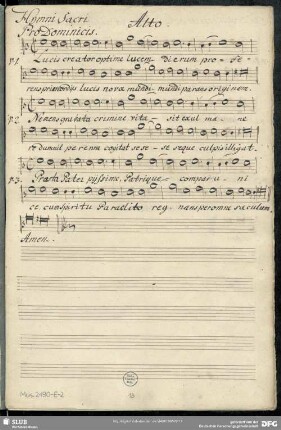 Hymni Sacri
Alto.
Pro Dominicis.
p.1. Lucis creator optime lucem Dierum pro - fe -
rens primordijs lucis novæ mundi - mundi parans originem.
p.2. Ne mens gravata crimine vitæ - sit exul mu - ne
re dum nil perenne cogitat sese - sese que culpis illigat.
p.3. Præsta Pater pijssime, Patrique - compar u - ni
ce cum Spiritu Paraclito reg - nans per omne sæculum.
Amen.
Mus. 2190-E-2
SLUB
DFG